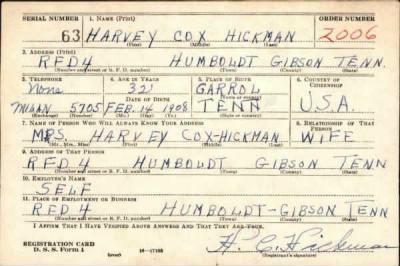 SERIAL NUMBER 1. NAME (Print) ORDER NUMBER
63 HARVEY COX HICKMAN 2006
(First) (Middle) (Last)
2. ADDRESS (Print)
RFD 4 HUMBOLDT GIBSON TENN.
(Number and street or R. F. D. number) (Town) (County) (State)
3. TELEPHONE 4. AGE IN YEARS 5. PLACE OF BIRTH 6. COUNTRY OF CITIZENSHIP
None 32 CARROL
DATE OF BIRTH (Town or county)
MILAN 5705 FEB. 14 1908 TENN U.S.A.
(Exchange) (Number) (Mo.) (Day) (Yr.) (State or country)
7. NAME OF PERSON WHO WILL ALWAYS KNOW YOUR ADDRESS 8. RELATIONSHIP OF THAT PERSON
MRS. HARVEY COX-HICKMAN WIFE
(Mr., Mrs., Miss) (First) (Middle) (Last)
9. ADDRESS OF THAT PERSON
RFD 4 HUMBOLDT GIBSON TENN
(Number and street or R. F. D. number) (Town) (County) (State)
10. EMPLOYER'S NAME
SELF
11. PLACE OF EMPLOYMENT OR BUSINESS
RFD 4 HUMBOLDT-GIBSON TENN
(Number and street or R. F. D. number) (Town) (County) (State)
I AFFIRM THAT I HAVE VERIFIED ABOVE ANSWERS AND THAT THEY ARE TRUE.
H. C. Hickman
REGISTRATION CARD
D. S. S. Form 1 (over) 16-17105 (Registrant's signature)